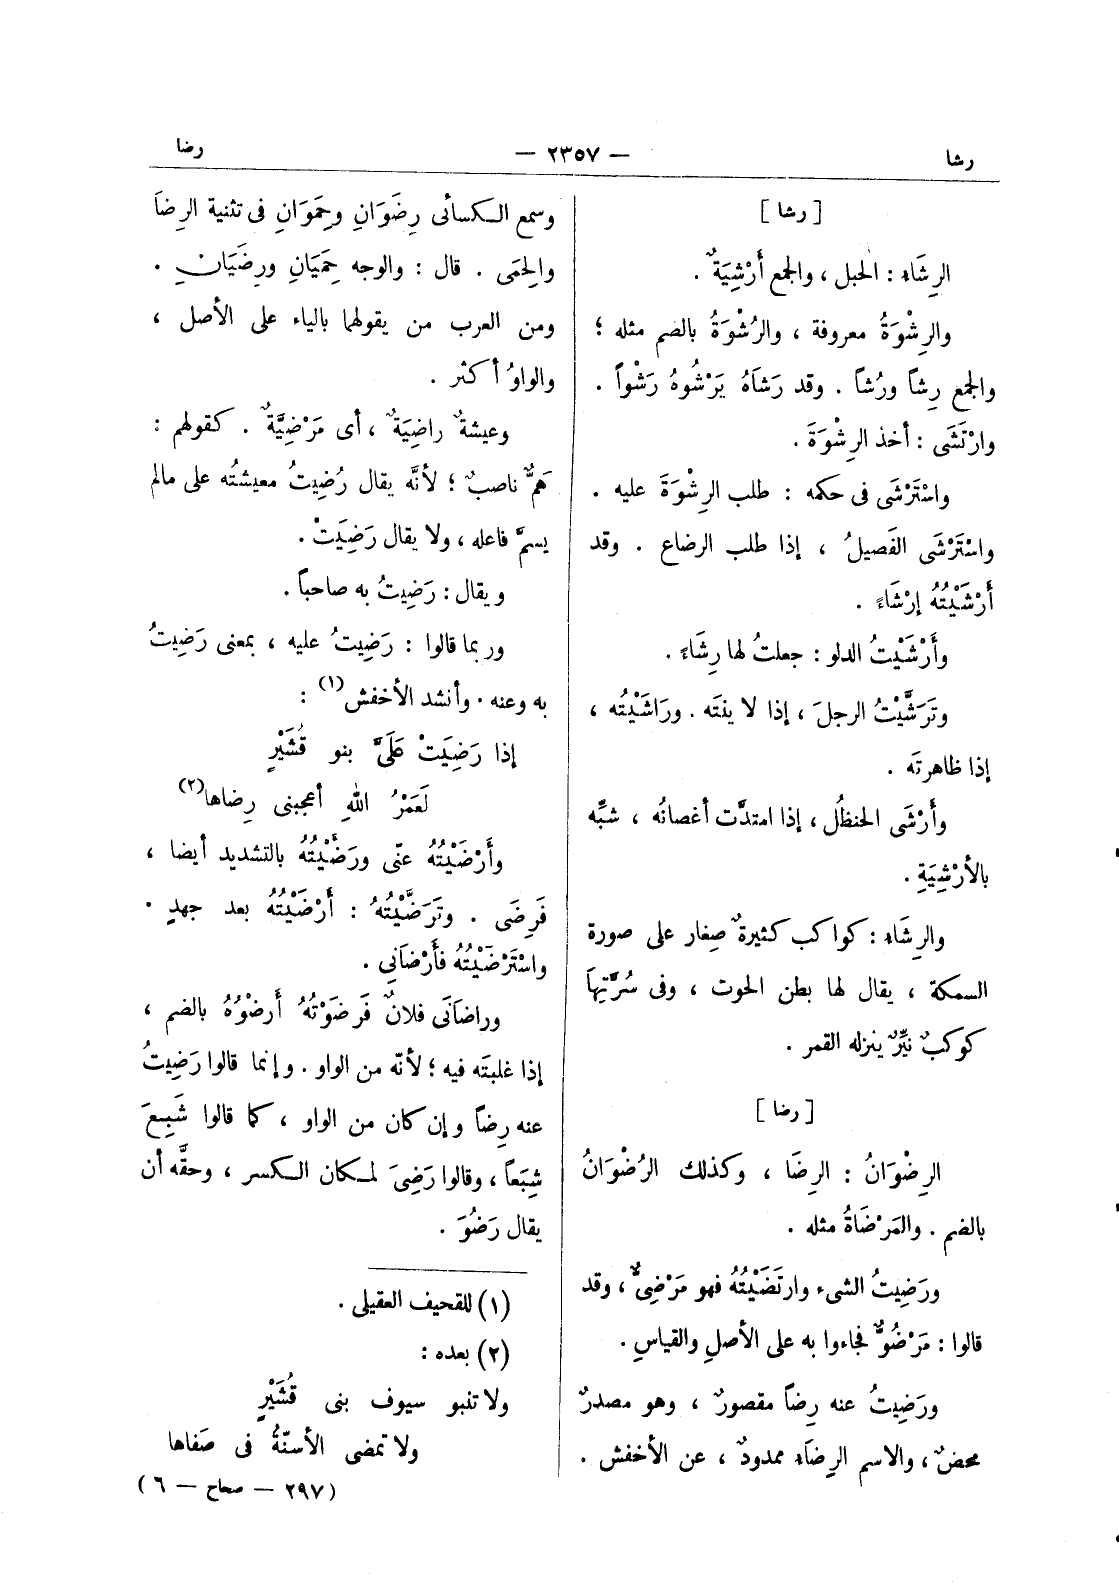 رشا
— ٢٣٥٧ —
رضا
[ رشا ]
الرِشَاء : الحبل ، والجمع أَرْشِيَةٌ .
والرِشْوَةُ معروفة ، والرُشْوَةُ بالضم مثله ؛
والجمع رِشاً ورُشاً . وقد رَشَاهُ يَرْشُوهُ رَشْواً .
وارْتَشَى : أخذ الرِشْوَةَ .
واسْتَرْشَى فى حكمه : طلب الرِشْوَةَ عليه .
واسْتَرْشَى الفَصيلُ ، إذا طلب الرضاع . وقد
أَرْشَيْتُهُ إرْشَاءً .
وأَرْشَيْتُ الدلو : جعلتُ لها رِشَاءً .
وتَرَشَّيْتُ الرجلَ ، إذا لاينتَه . ورَاشَيْتُه ،
إذا ظاهرتَه .
وأَرْشَى الحنظلُ ، إذا امتدَّت أغصانُه ، شبِّه
بالأرْشِيَةِ .
والرِشَاء : كواكب كثيرةٌ صِغار على صورة
السمكة ، يقال لها بطن الحوت ، وفى سُرَّتِهَا
كوكبٌ نيِّرٌ ينزله القمر .
[ رضا ]
الرِضْوَانُ : الرِضَا ، وكذلك الرُضْوَانُ
بالضم . والمَرْضَاةُ مثله .
ورَضِيتُ الشىء وارتَضَيْتُهُ فهو مَرْضِىٌّ ، وقد
قالوا : مَرْضُوٌّ فجاءوا به على الأصلِ والقياسِ .
ورَضِيتُ عنه رِضاً مقصورٌ ، وهو مصدرٌ
محضٌ ، والاسم الرِضَاء ممدودٌ ، عن الأخفش .
وسمع الكسائى رِضَوَانِ وحِمَوَانِ فى تثنية الرِضَا
والحِمَى . قال : والوجه حِمَيَانِ ورِضَيَانِ .
ومن العرب من يقولهما بالياء على الأصل ،
والواوُ أكثر .
وعيشةٌ راضِيَةٌ ، أى مَرْضِيَّةٌ . كقولهم :
هَمٌّ ناصبٌ ؛ لأنَّه يقال رُضِيتُ معيشتُه على مالم
يسمَّ فاعله ، ولا يقال رَضِيَتْ .
ويقال : رَضِيتُ به صاحباً .
وربما قالوا : رَضِيتُ عليه ، بمعنى رَضِيتُ
به وعنه . وأنشد الأخفش (١) :
إذا رَضِيَتْ عَلَىَّ بنو قُشَيْرٍ
لَعَمْرُ اللهِ أعجبنى رِضاها (٢)
وأَرْضَيْتُهُ عنّى ورَضَّيْتُهُ بالتشديد أيضا ،
فَرضِىَ . وتَرَضَّيْتُهُ : أَرْضَيْتُهُ بعد جهدٍ .
واسْتَرْضَيْتُهُ فأَرْضَانِى .
وراضَانَى فلانٌ فَرضَوْتُهُ أَرضُوُهُ بالضم ،
إذا غلبتَه فيه ؛ لأنّه من الواو . وإنما قالوا رَضِيتُ
عنه رِضاً وإن كان من الواو ، كما قالوا شَبِعَ
شِبَعاً ، وقالوا رَضِىَ لمكان الكسر ، وحقُّه أن
يقال رَضُوَ .
(١) للقحيف العقيلى .
(٢) بعده :
ولا تنبو سيوف بنى قُشَيْرٍ
ولا تمضى الأسنّةُ فى صَفاها
(٢٩٧ — صحاح — ٦)